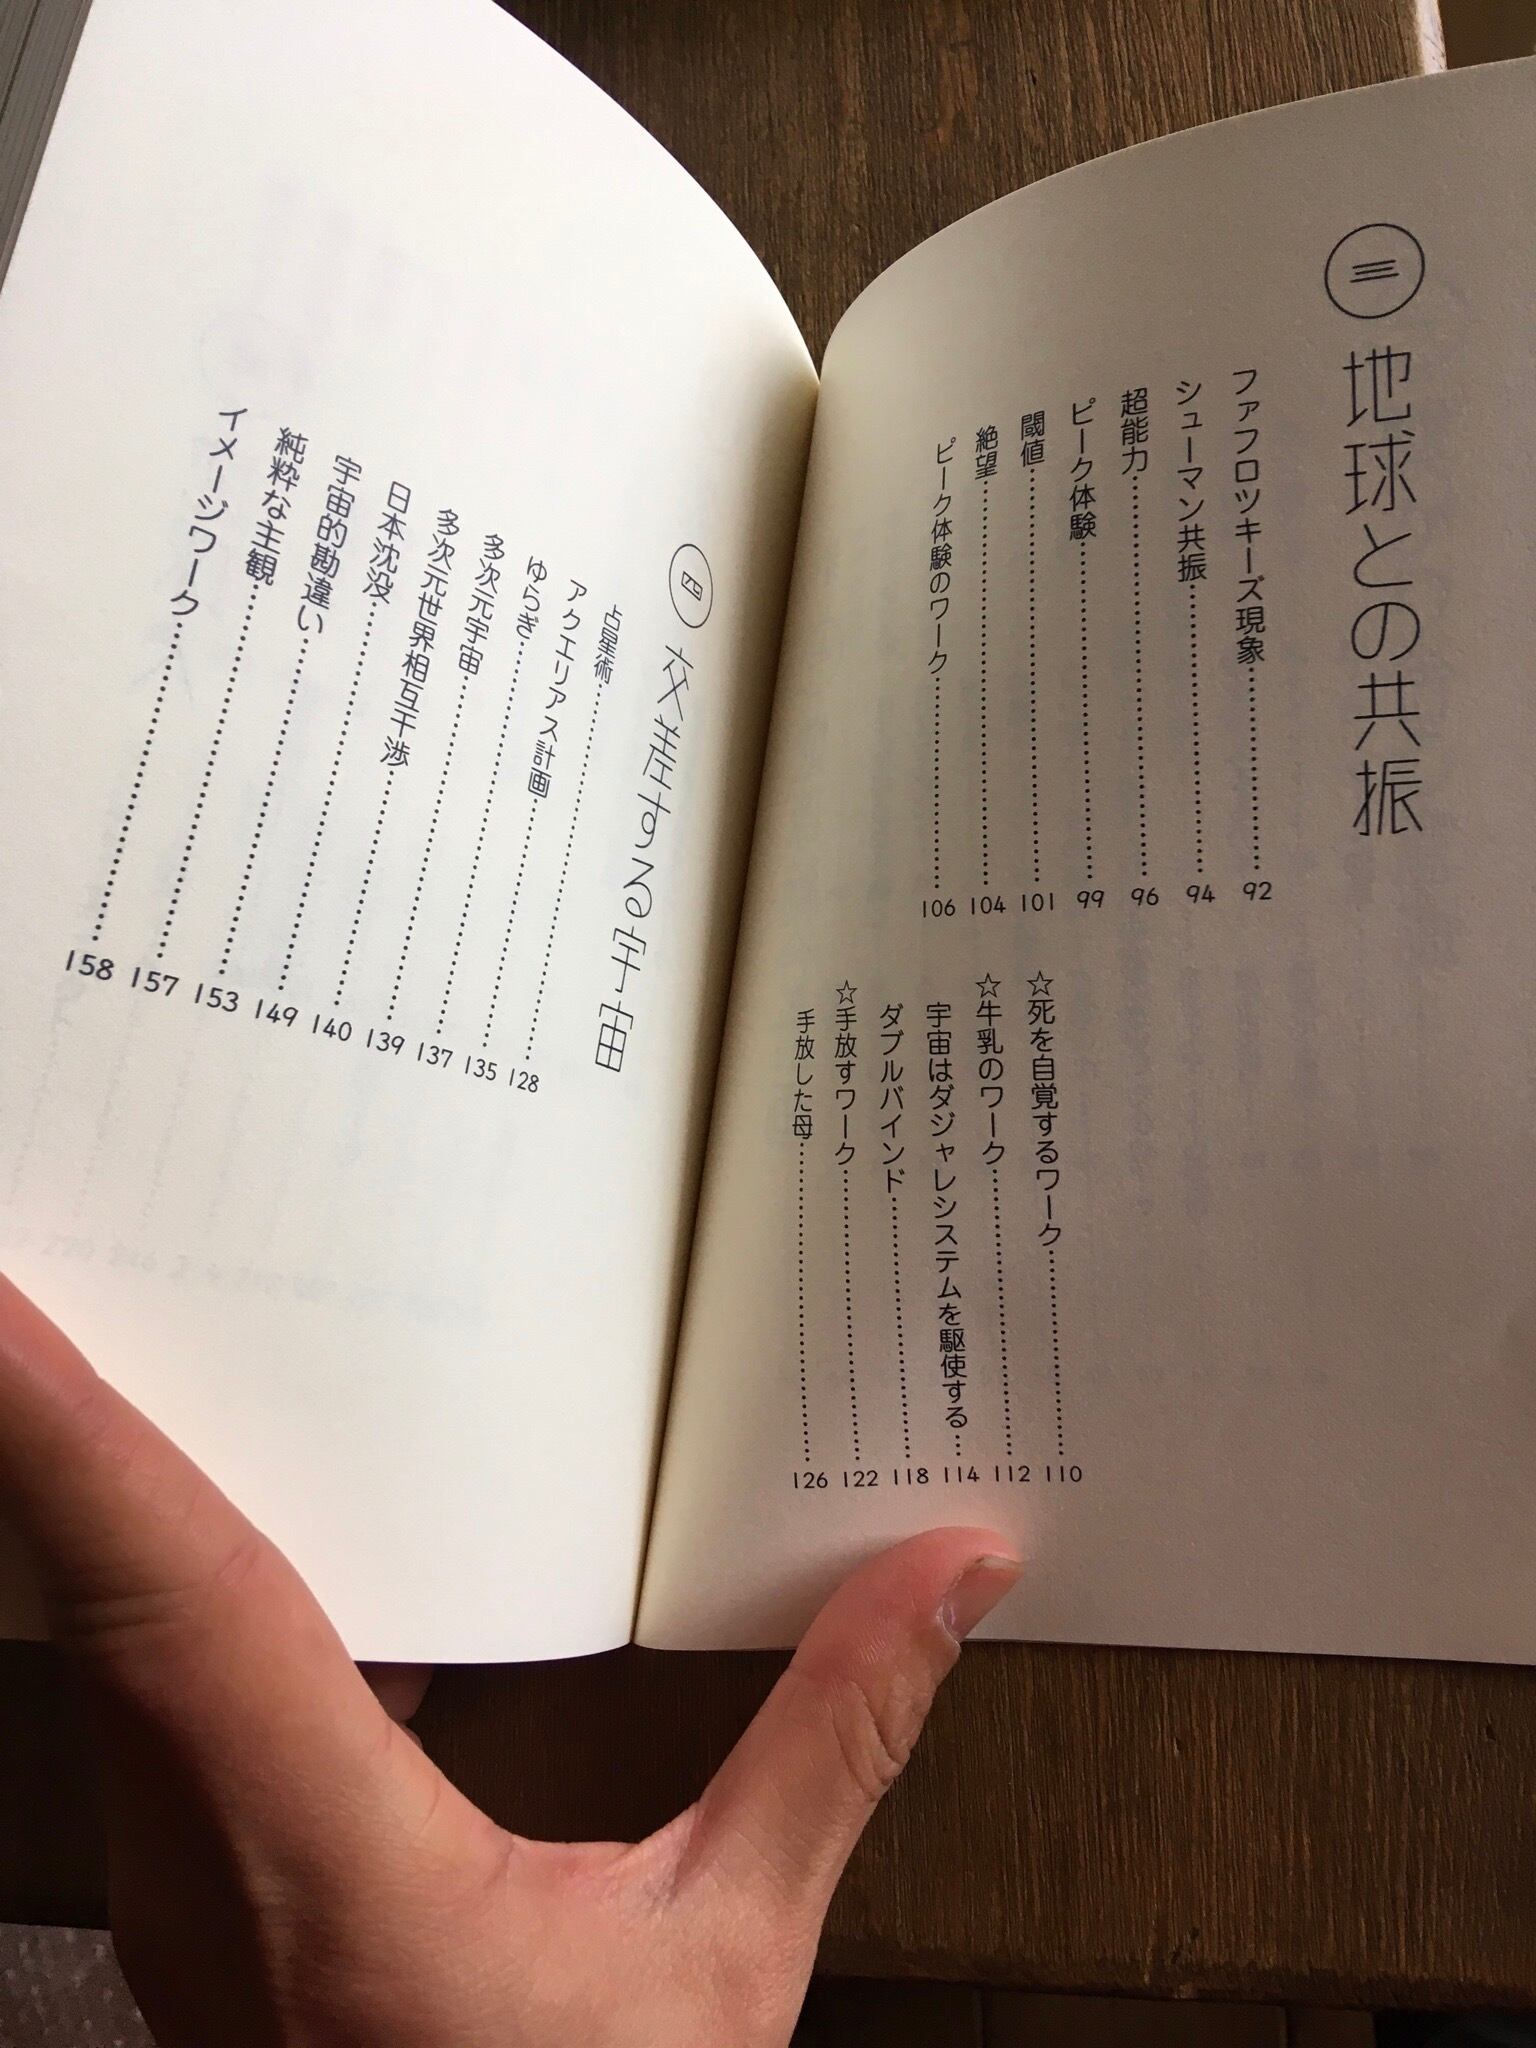 三 地球との共振
ファフロツキーズ現象 92
シューマン共振 94
超能力 96
ピーク体験 99
閾値 101
絶望 104
ピーク体験のワーク 106
☆死を自覚するワーク 110
☆牛乳のワーク 112
宇宙はダジャレシステムを駆使する 114
ダブルバインド 118
☆手放すワーク 122
手放した母 126
四 交差する宇宙
占星術 128
アクエリアス計画 135
ゆらぎ 137
多次元宇宙 139
多次元世界相互干渉 140
日本沈没 149
宇宙的勘違い 153
純粋な主観 157
イメージワーク 158